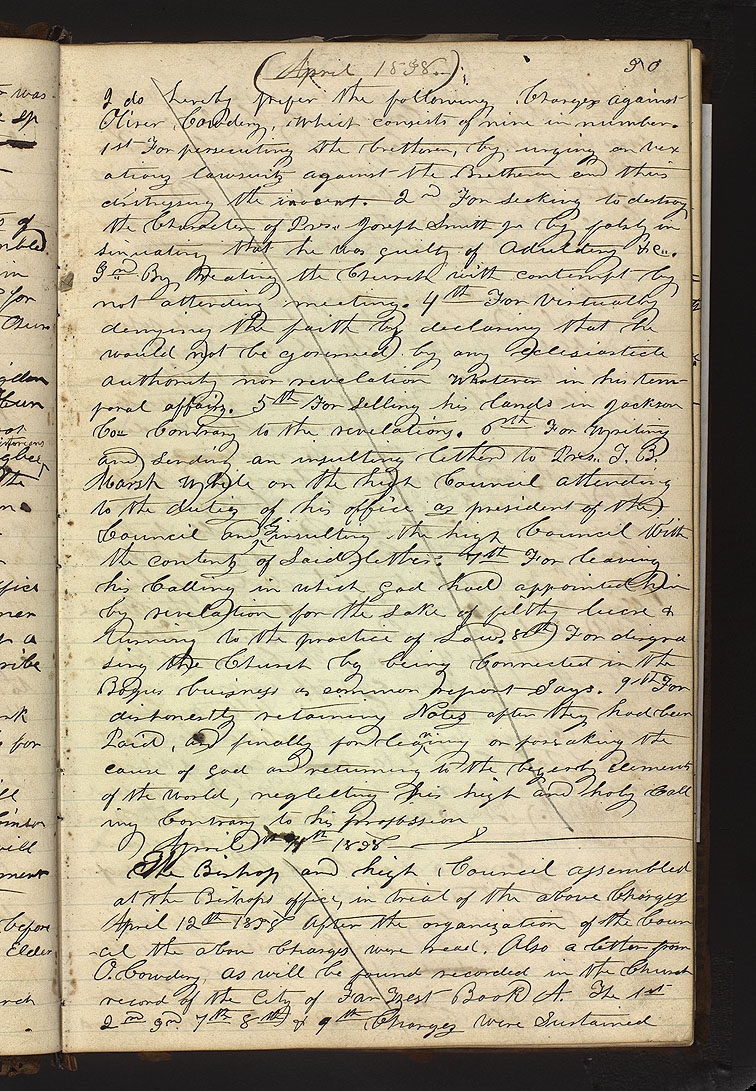 (April, 1838.)
30
I do hereby prefer the following Charges against
Oliver Cowdery, Which consists of nine in number.
1st For persecuting the brethren, by urging on vex
atious lawsuits against the Bretheren and thus
distressing the inocent. 2nd For seeking to destroy
the Character of Pres. Joseph Smith Jr by falsly in
sinuating that he was guilty of adultery &c.
3rd By treating the Church with contempt by
not attending meeting. 4th For virtually
denying the faith by declaring that he
would not be governed by any eclesiasticle
authority nor revelation Whatever in his tem
poral affairs. 5th For Selling his lands in Jackson
Co. Contrary to the revelations. 6th For Writing
and Sending an insulting letter to Pres. T. B.
Marsh While on the high Council attending
to the duties of his office as president of the
Council and insulting the high Council With
the contents of Said letter. 7th For leaving
his Calling in which God had appointed him
by revelation for the Sake of filthy lucre &
turning to the practice of Law. 8th For disgra
sing the Church by being Connected in the
Bogus buisness as common report Says. 9th For
dishonestly retaining Notes after they had been
Paid, and finally for leaving or forsaking the
cause of God and returning to the begerly elements
of the world, neglecting his high and holy Call
ing Contrary to his profession
April 11th 1838
The Bishop and high Council assembled
at the Bishops office, in trial of the above Charges
April 12th 1838 After the organization of the Coun
cil the above Charges were read. Also a letter from
O. Cowdery, as will be found recorded in the Church
record of the City of Far West Book A. The 1st
2nd 3rd 7th 8th & 9th Charges were Sustained